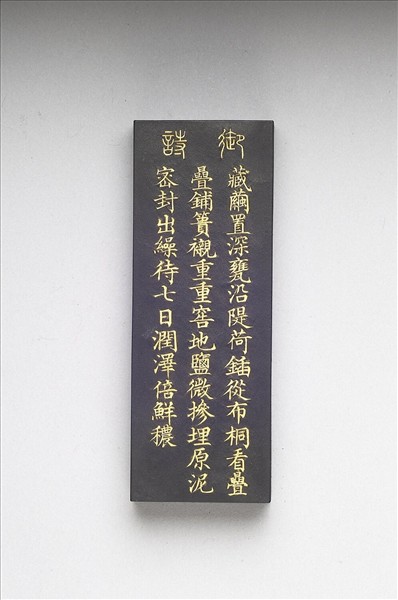 御詩
藏繭置深甕沿隄荷鍤從布桐看疊
疊鋪簀襯重重窖地鹽微摻埋原泥
密封出繰待七日潤澤倍鮮穠